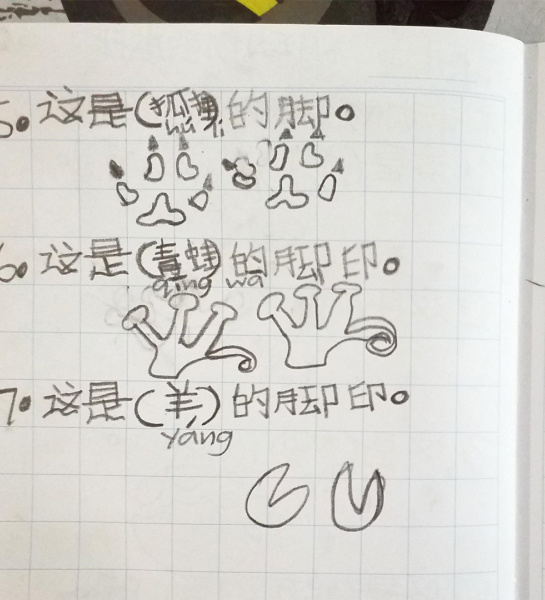 5. 这是(狐狸的脚。
hú li
6. 这是(青蛙的脚印。
qing wa
7. 这是(羊)的脚印。
yáng